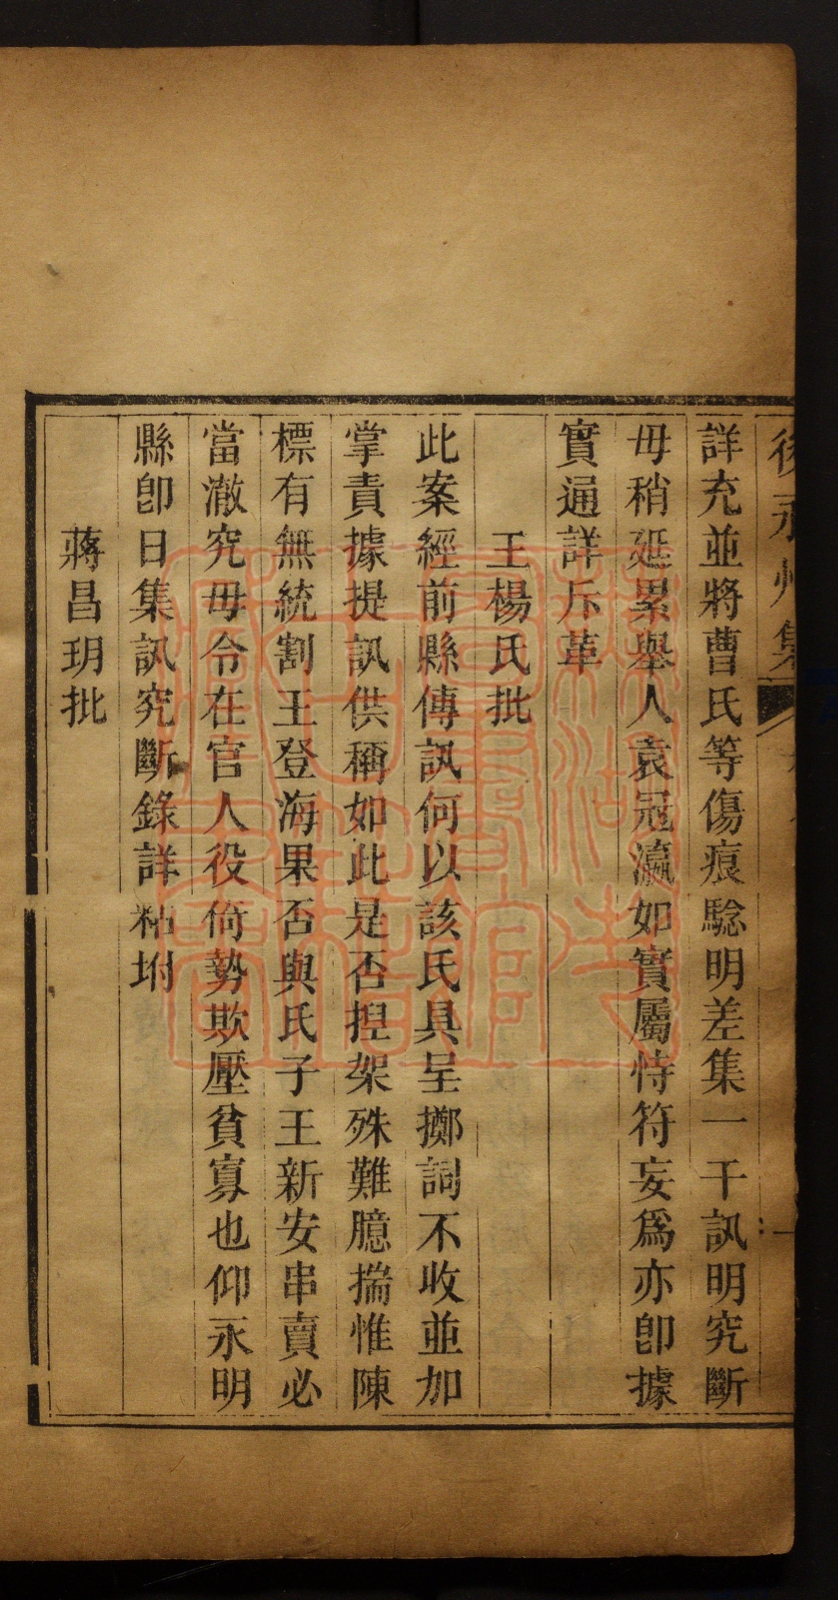 後永州集
詳充並將曹氏等傷痕驗明差集一干訊明究斷
毋稍延累舉人袁冠瀛如實屬恃符妄爲亦卽據
實通詳斥革
王楊氏批
此案經前縣傳訊何以該氏具呈擲詞不收並加
掌責據提訊供稱如此是否揑架殊難臆揣惟陳
標有無統割王登海果否與氏子王新安串賣必
當澈究毋令在官人役倚勢欺壓貧寡也仰永明
縣卽日集訊究斷錄詳粘坿
蔣昌玥批